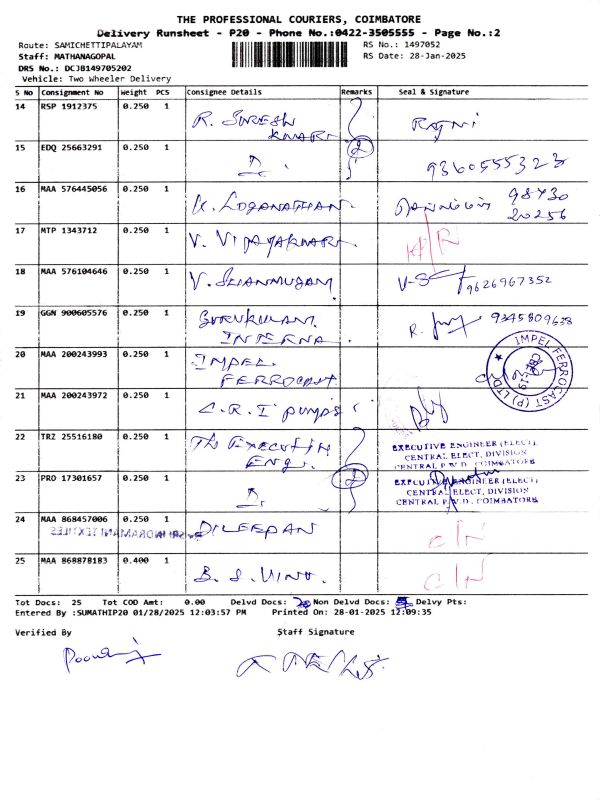 THE PROFESSIONAL COURIERS, COIMBATORE
Delivery Runsheet - P20 - Phone No.:0422-3505555 - Page No.:2
Route: SAMICHETTIPALAYAM
RS No.: 1497052
Staff: MATHANAGOPAL
RS Date: 28-Jan-2025
DRS No.: DCJB149705202
Vehicle: Two Wheeler Delivery
S No Consignment No Weight PCS Consignee Details Remarks Seal & Signature
14 RSP 1912375 0.250 1 R. SURESH KUMAR RAJNI
15 EDQ 25663291 0.250 1 2 9360555323
16 MAA 576445056 0.250 1 K. LOGANATHAN. 98430 20256
17 MTP 1343712 0.250 1 V. VIJAYAKUMAR
18 MAA 576104646 0.250 1 V. SHANMUGAM V-S 9626967352
19 GGN 900605576 0.250 1 GURUKULAM INTERNA. R. 9345809638
20 MAA 200243993 0.250 1 IMPEL FERROCAST
IMPEL FERROCAST (P) LTD
21 MAA 200243972 0.250 1 C.R.I PUMPS
22 TRZ 25516180 0.250 1 The EXECUTIVE ENG.
EXECUTIVE ENGINEER (ELECT),
CENTRAL ELECT, DIVISION
CENTRAL P.W.D. COIMBATORE
23 PRO 17301657 0.250 1 2
EXECUTIVE ENGINEER (ELECT)
CENTRAL ELECT, DIVISION
CENTRAL P.W.D. COIMBATORE
24 MAA 868457006 0.250 1 DILEEPAN C/N
25 MAA 868878183 0.400 1 B. S. VINO. C/N
Tot Docs: 25 Tot COD Amt: 0.00 Delvd Docs: Non Delvd Docs: Delvy Pts:
Entered By :SUMATHIP20 01/28/2025 12:03:57 PM Printed On: 28-01-2025 12:09:35
Verified By Staff Signature